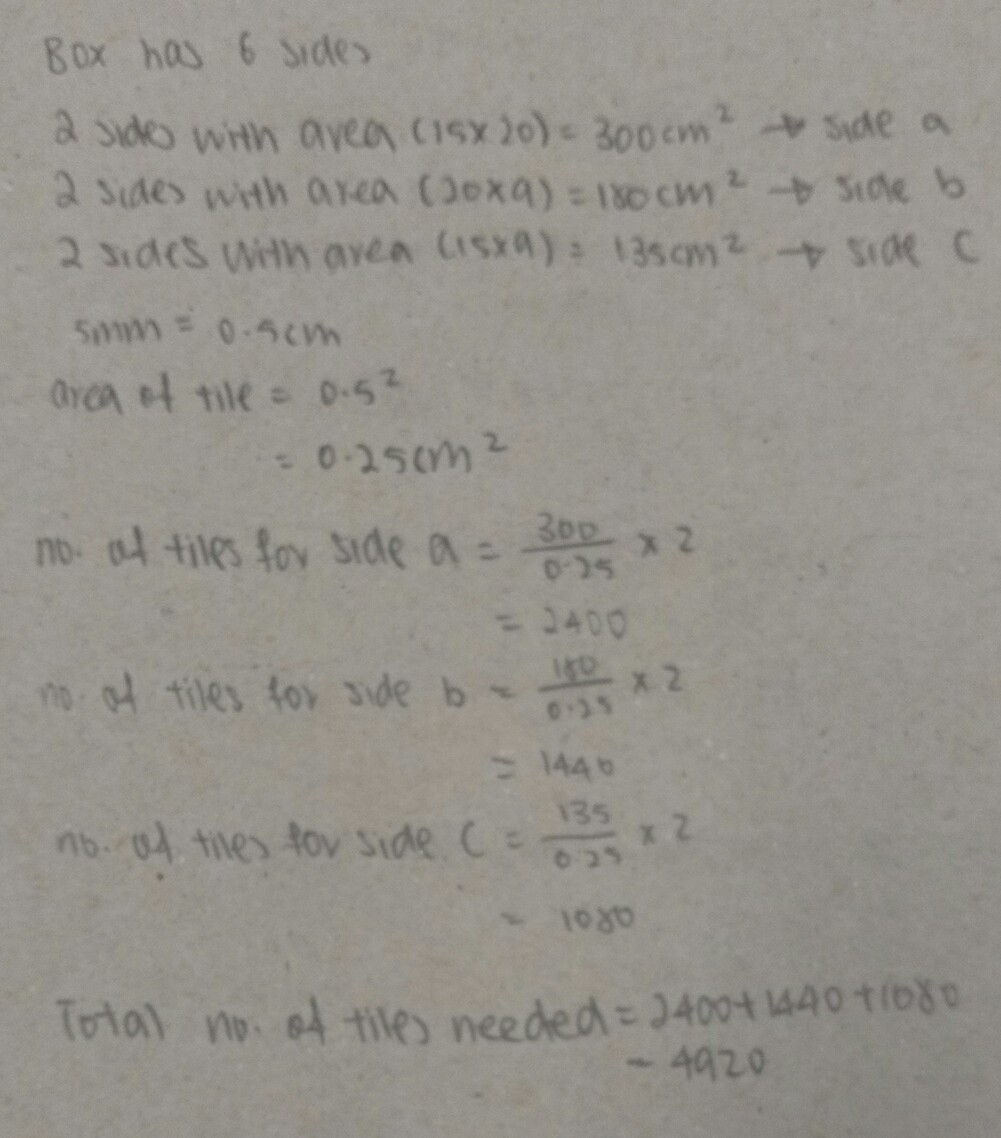 Box has 6 sides
2 sides with area (15x20) = 300cm² → side a
2 sides with area (20x9) = 180cm² → side b
2 sides with area (15x9) = 135cm² → side c
5mm = 0.5cm
area of tile = 0.5²
= 0.25cm²
no. of tiles for side a = 300/0.25 x 2
= 2400
no. of tiles for side b = 180/0.25 x 2
= 1440
no. of tiles for side c = 135/0.25 x 2
= 1080
Total no. of tiles needed = 2400+1440+1080
= 4920